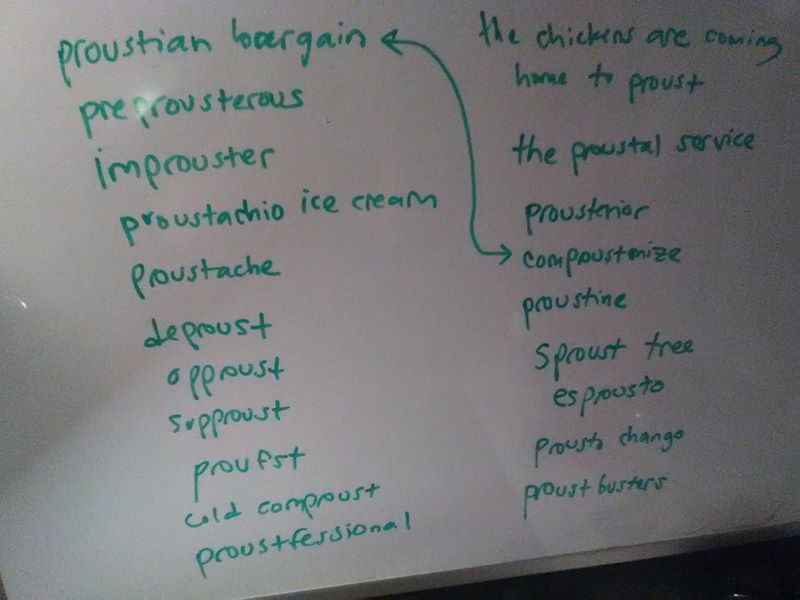 proustian bargain
preprousterous
improuster
proustachio ice cream
proustache
deproust
opproust
supproust
proufst
cold comproust
proustfessional
the chickens are coming
home to proust
the proustal service
prousterior
comproustmize
proustine
sproust tree
esprousto
prousto chango
proustbusters